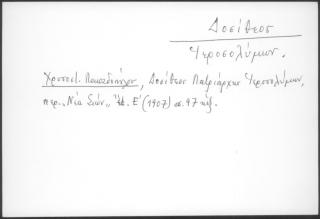 Δοσίθεος
Ἱεροσολύμων.
Χρυσοστ. Παπαδόπουλος, Δοσίθεος Πατριάρχης Ἱεροσολύμων,
περ. „Νέα Σιών„ Ἔτ. Ε' (1907) σ. 97 κἑξ.